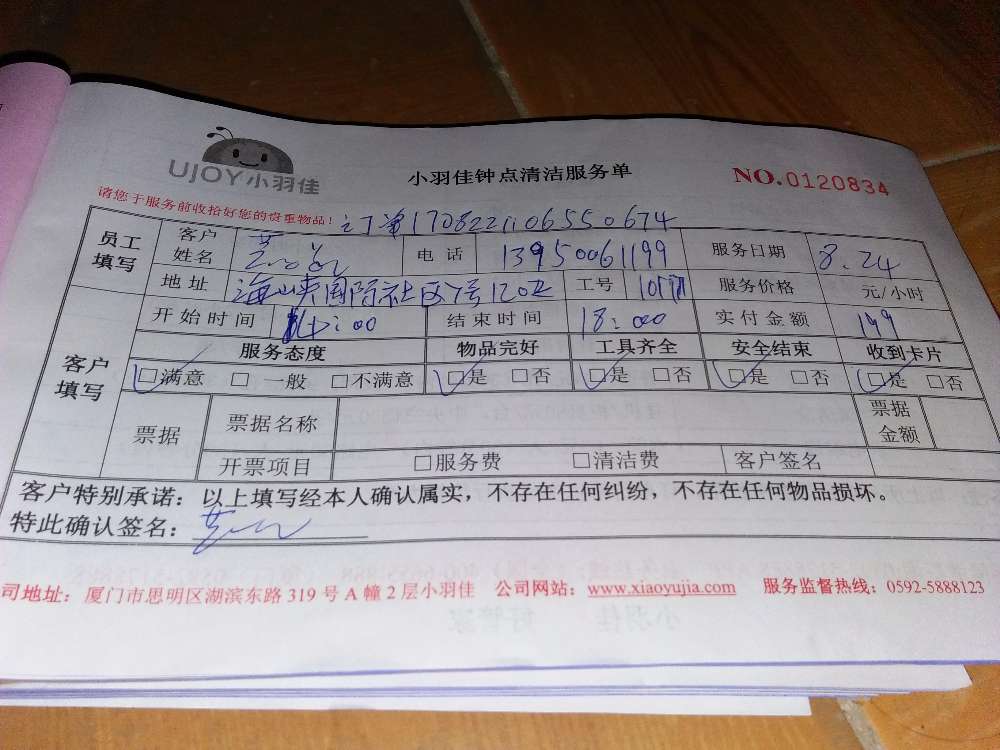 UJOY小羽佳
小羽佳钟点清洁服务单
NO.0120834
请您于服务前收拾好您的贵重物品!
订单1708221106550674
员工填写 客户姓名 电话 13950061199 服务日期 8.24
地址 海峡国际社区 工号 服务价格 元/小时
客户填写 开始时间 :00 结束时间 18:00 实付金额 199
服务态度 物品完好 工具齐全 安全结束 收到卡片
□满意 □一般 □不满意 □是 □否 □是 □否 □是 □否 □是 □否
票据 票据名称 票据金额
开票项目 □服务费 □清洁费 客户签名
客户特别承诺：以上填写经本人确认属实，不存在任何纠纷，不存在任何物品损坏。
特此确认签名：
司地址：厦门市思明区湖滨东路 319 号 A 幢 2 层小羽佳 公司网站：www.xiaoyujia.com 服务监督热线：0592-5888123